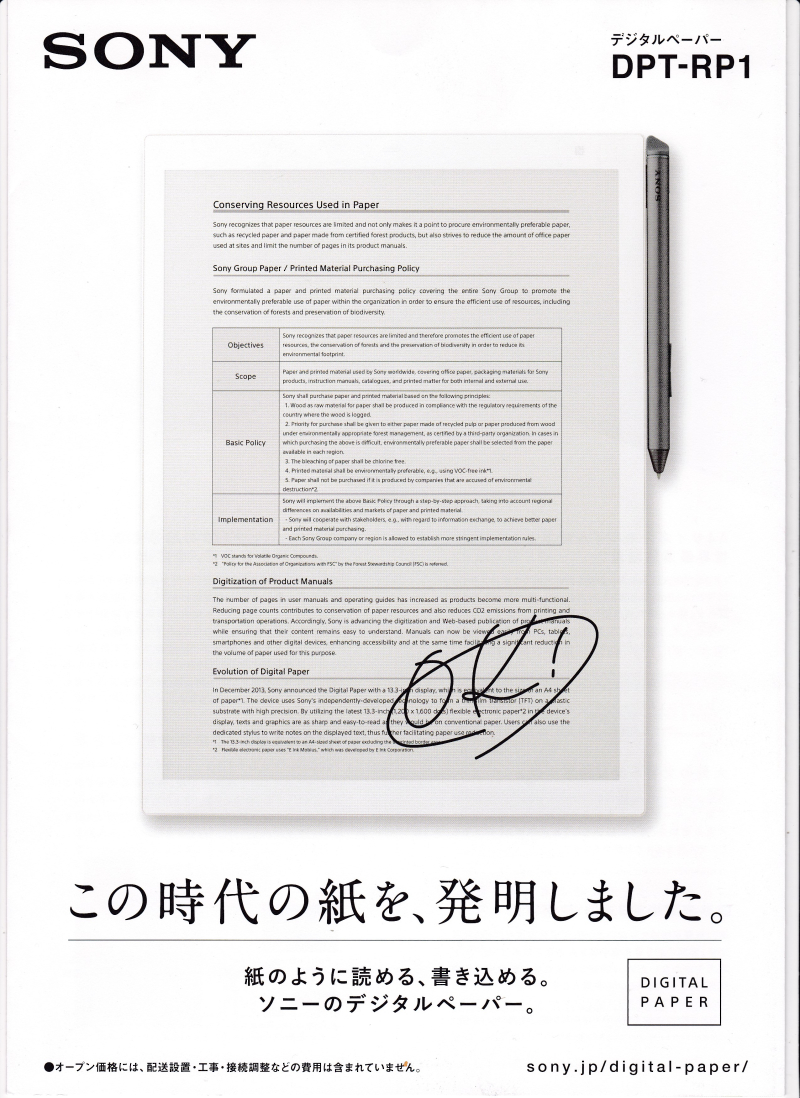 SONY
デジタルペーパー
DPT-RP1
SONY
Conserving Resources Used in Paper
Sony recognizes that paper resources are limited and not only makes it a point to procure environmentally preferable paper,
such as recycled paper and paper made from certified forest products, but also strives to reduce the amount of office paper
used at sites and limit the number of pages in its product manuals.
Sony Group Paper / Printed Material Purchasing Policy
Sony formulated a paper and printed material purchasing policy covering the entire Sony Group to promote the
environmentally preferable use of paper within the organization in order to ensure the efficient use of resources, including
the conservation of forests and preservation of biodiversity.
Objectives
Sony recognizes that paper resources are limited and therefore promotes the efficient use of paper
resources, the conservation of forests and the preservation of biodiversity in order to reduce its
environmental footprint.
Scope
Paper and printed material used by Sony worldwide, covering office paper, packaging materials for Sony
products, instruction manuals, catalogues, and printed matter for both internal and external use.
Basic Policy
Sony shall purchase paper and printed material based on the following principles:
1. Wood as raw material for paper shall be produced in compliance with the regulatory requirements of the
country where the wood is logged.
2. Priority for purchase shall be given to either paper made of recycled pulp or paper produced from wood
under environmentally appropriate forest management, as certified by a third-party organization. In cases in
which purchasing the above is difficult, environmentally preferable paper shall be selected from the paper
available in each region.
3. The bleaching of paper shall be chlorine free.
4. Printed material shall be environmentally preferable, e.g., using VOC-free ink*1.
5. Paper shall not be purchased if it is produced by companies that are accused of environmental
destruction*2.
Implementation
Sony will implement the above Basic Policy through a step-by-step approach, taking into account regional
differences on availabilities and markets of paper and printed material.
- Sony will cooperate with stakeholders, e.g., with regard to information exchange, to achieve better paper
and printed material purchasing.
- Each Sony Group company or region is allowed to establish more stringent implementation rules.
*1 VOC stands for Volatile Organic Compounds.
*2 "Policy for the Association of Organizations with FSC" by the Forest Stewardship Council (FSC) is referred.
Digitization of Product Manuals
The number of pages in user manuals and operating guides has increased as products become more multi-functional.
Reducing page counts contributes to conservation of paper resources and also reduces CO2 emissions from printing and
transportation operations. Accordingly, Sony is advancing the digitization and Web-based publication of product manuals
while ensuring that their content remains easy to understand. Manuals can now be viewed easily from PCs, tablets,
smartphones and other digital devices, enhancing accessibility and at the same time facilitating a significant reduction in
the volume of paper used for this purpose.
Evolution of Digital Paper
In December 2013, Sony announced the Digital Paper with a 13.3-inch display, which is equivalent to the size of an A4 sheet
of paper*1. The device uses Sony's independently-developed technology to form a thin film transistor (TFT) on a plastic
substrate with high precision. By utilizing the latest 13.3-inch (1,200 x 1,600 dots) flexible electronic paper*2 in the device's
display, texts and graphics are as sharp and easy-to-read as they would be on conventional paper. Users can also use the
dedicated stylus to write notes on the displayed text, thus further facilitating paper use reduction.
*1 The 13.3-inch display is equivalent to an A4-sized sheet of paper excluding the unprinted border area.
*2 Flexible electronic paper uses "E Ink Mobius," which was developed by E Ink Corporation.
OK!
この時代の紙を、発明しました。
紙のように読める、書き込める。
ソニーのデジタルペーパー。
DIGITAL
PAPER
●オープン価格には、配送設置・工事・接続調整などの費用は含まれていません。
sony.jp/digital-paper/